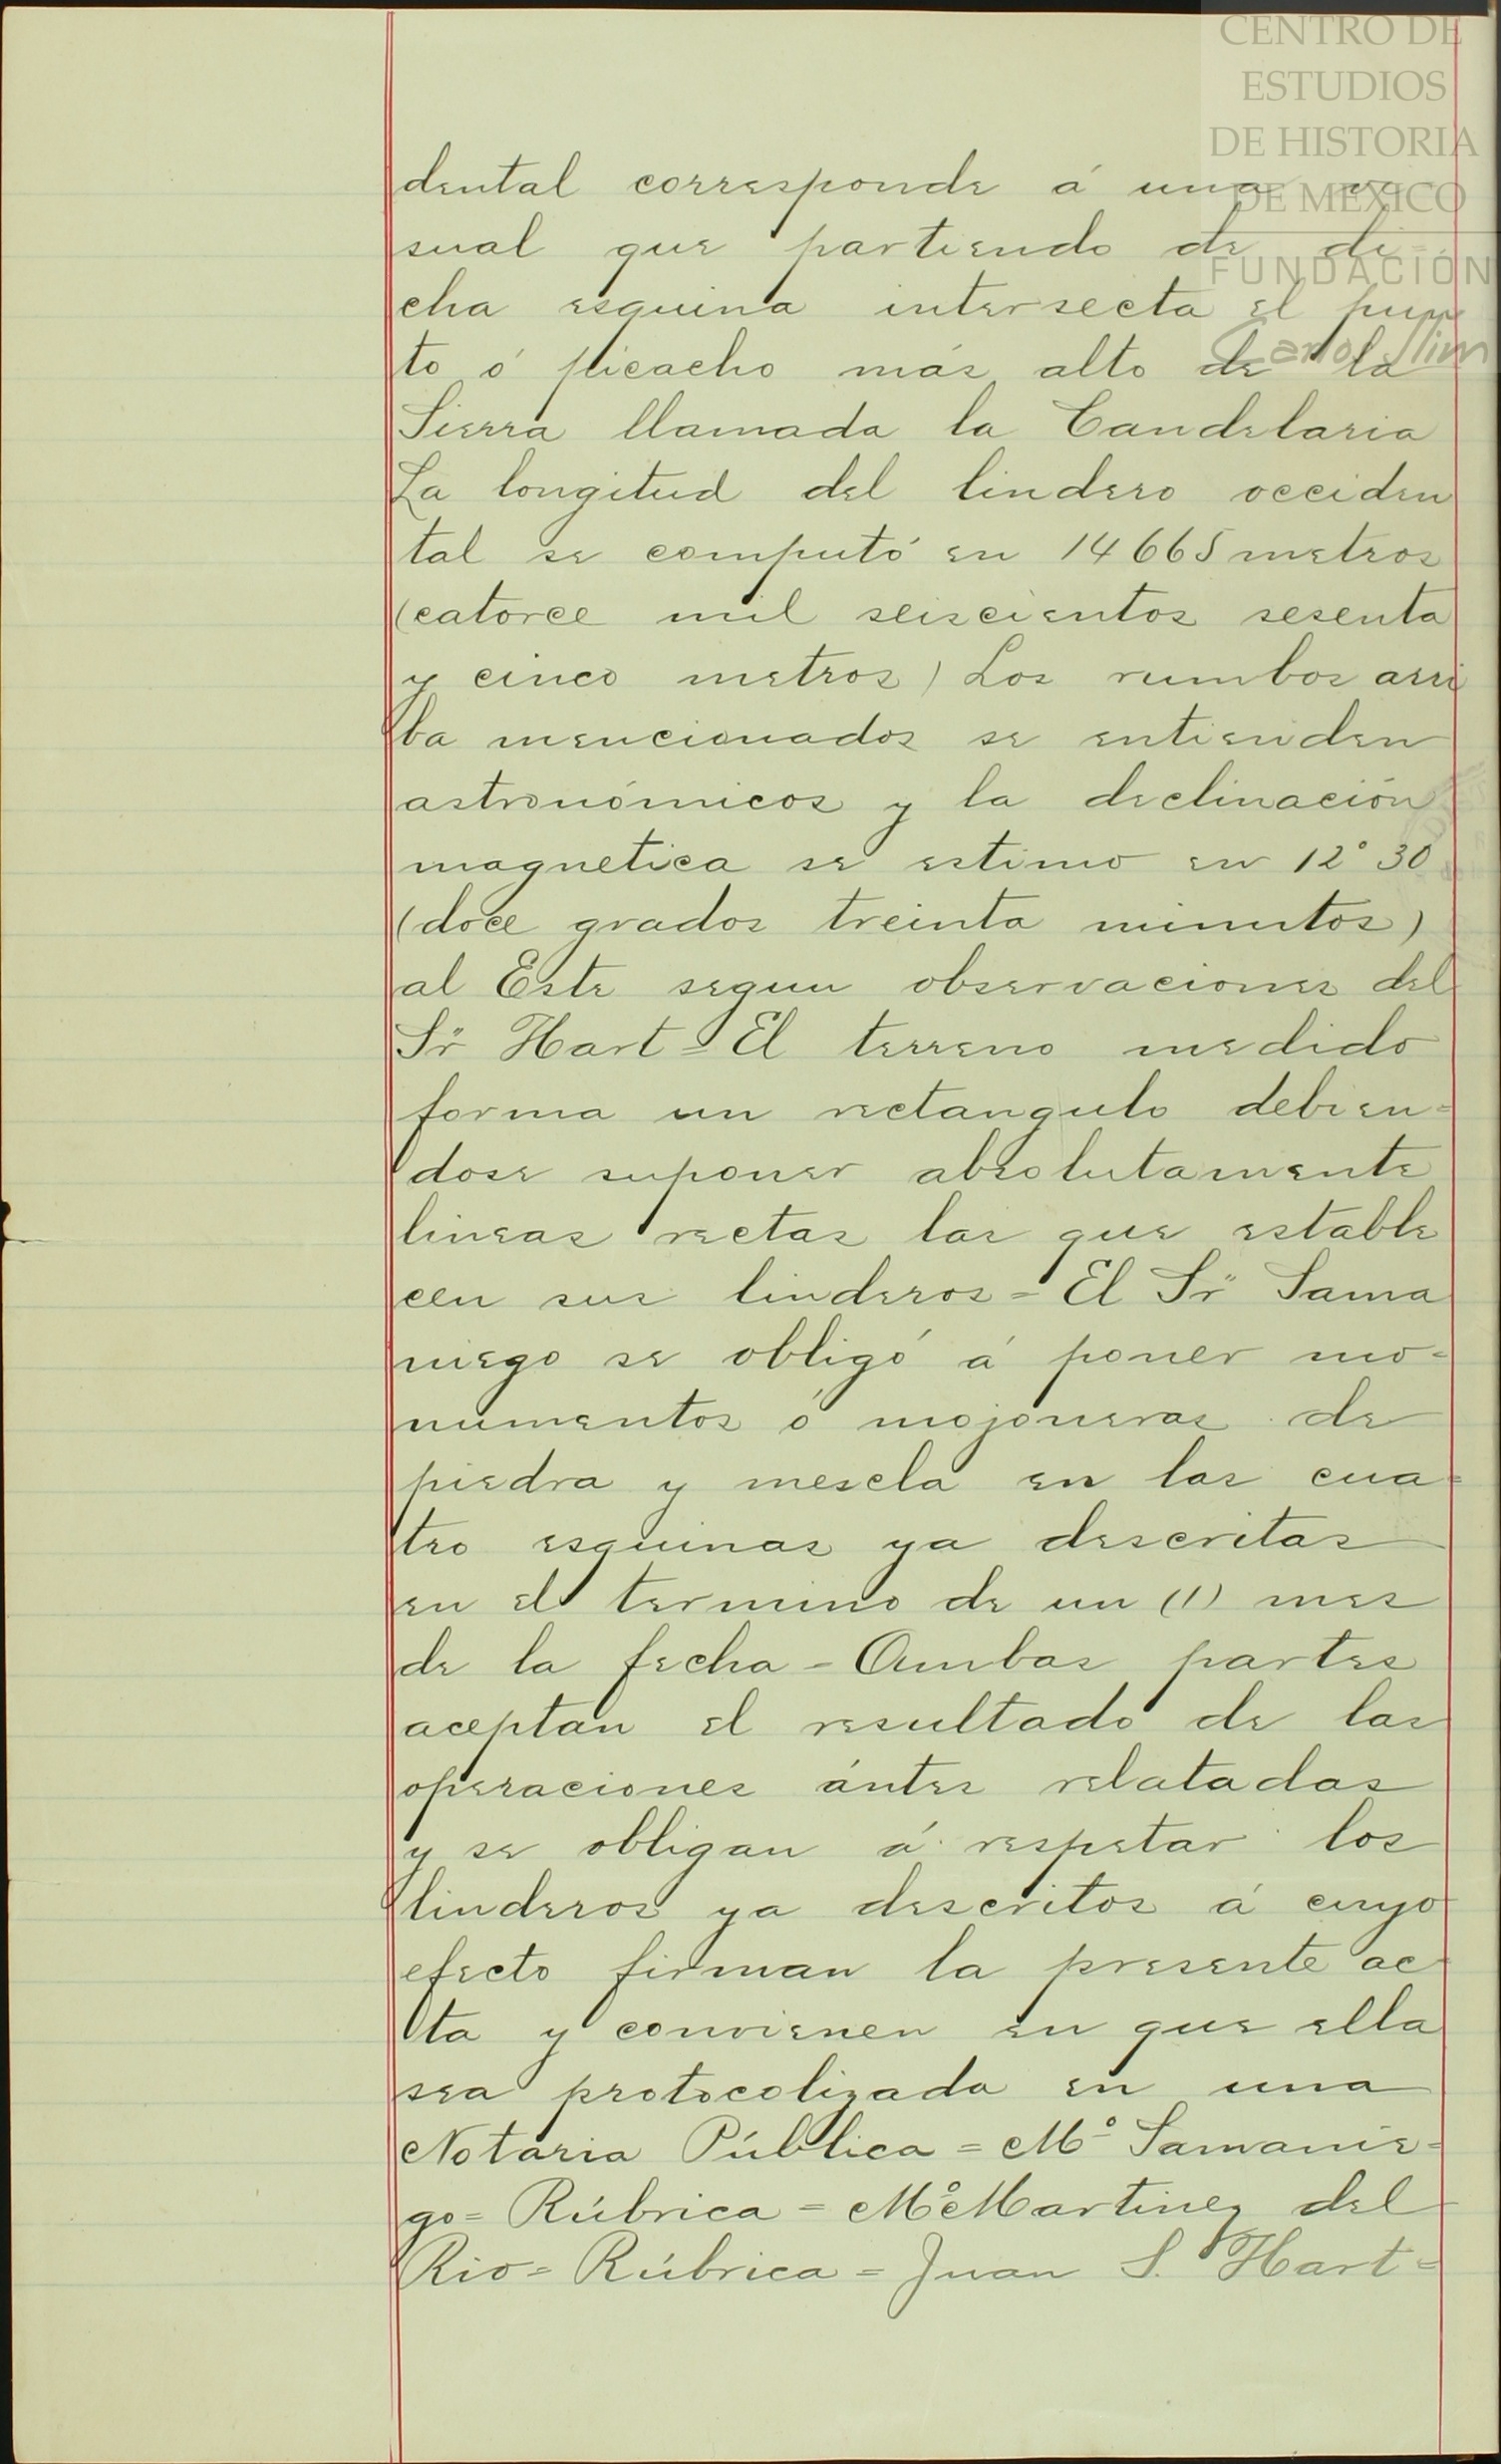 CENTRO DE
ESTUDIOS
DE HISTORIA
DE MEXICO
FUNDACIÓN
Carlos Slim
dental corresponde á una
sual que partiendo de di-
cha esquina intersecta el pun
to ó picacho más alto de la
Sierra llamada la Candelaria
La longitud del lindero occiden
tal se computó en 14665 metros
(catorce mil seiscientos sesenta
y cinco metros) Los rumbos arri
ba mencionados se entienden
astronómicos y la declinación
magnetica se estimo en 12° 30
(doce grados treinta minutos)
al Este segun observaciones del
Sr Hart = El terreno medido
forma un rectangulo debien=
dose suponer absolutamente
lineas rectas las que estable
cen sus linderos = El Sr Sama
niego se obligó á poner mo-
numentos ó mojoneras de
piedra y mescla en las cua=
tro esquinas ya descritas
en el termino de un (1) mes
de la fecha - Ambas partes
aceptan el resultado de las
operaciones ántes relatadas
y se obligan á respetar los
linderos ya descritos á cuyo
efecto firman la presente ac
ta y convienen en que ella
sea protocolizada en una
Notaria Pública = M° Samanie=
go = Rúbrica = M° Martinez del
Rio = Rúbrica = Juan S. Hart =